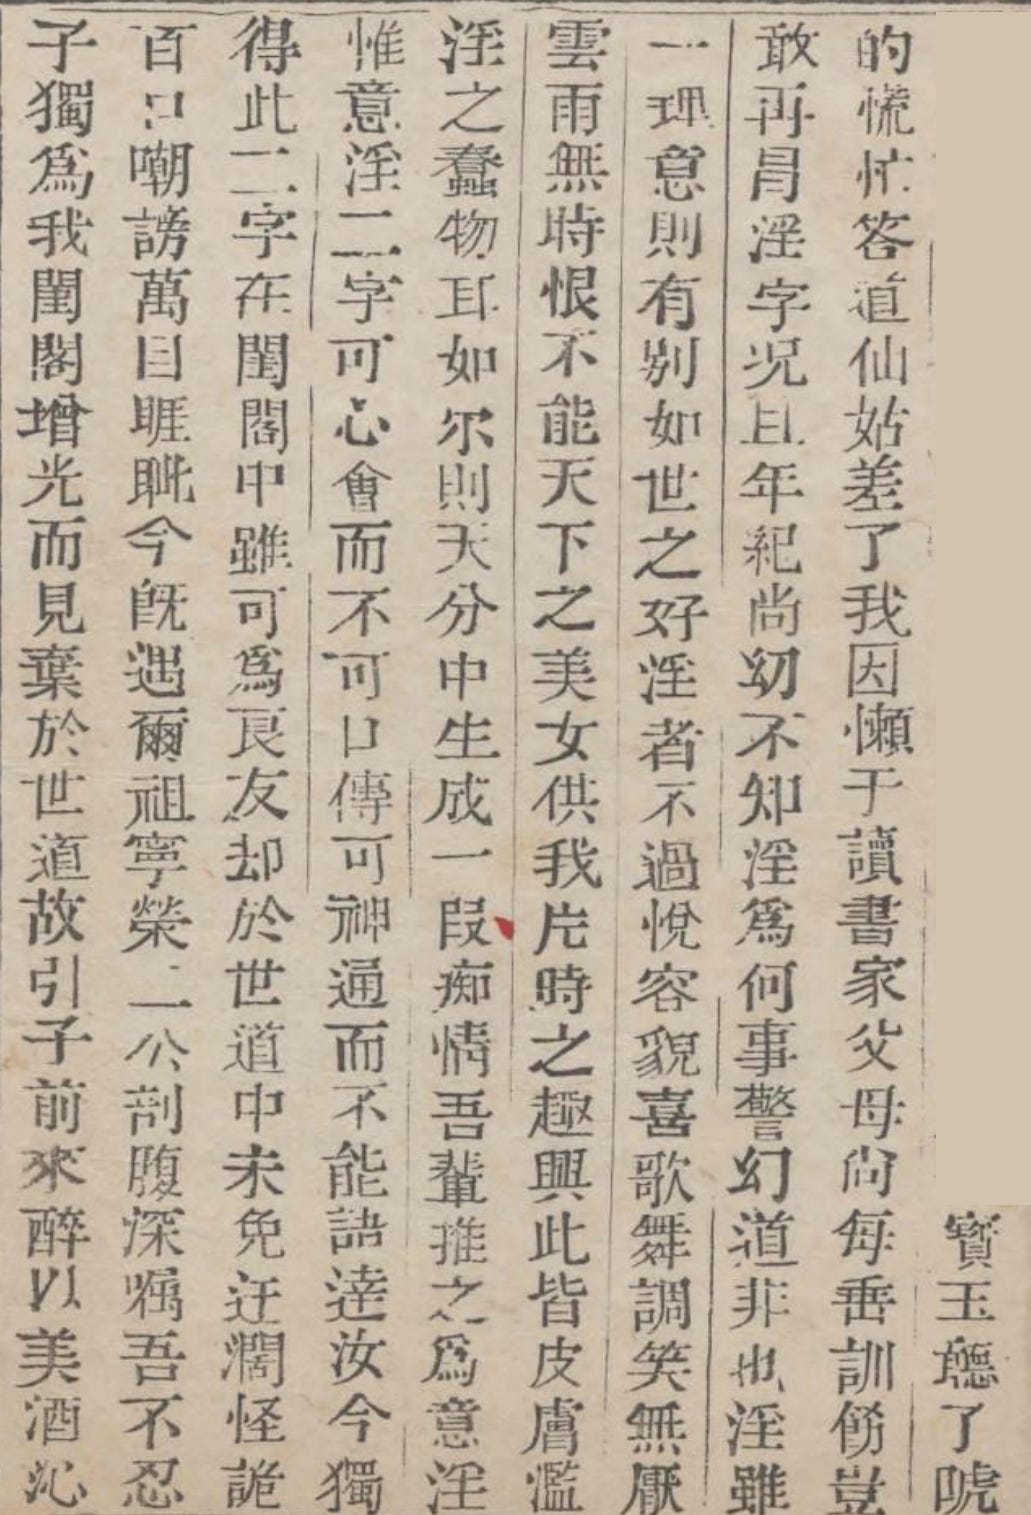 寳玉聽了唬
的慌忙答道仙姑差了我因懶于讀書家父母尚每垂訓飭豈
敢再冒淫字况且年紀尚幼不知淫爲何事警幻道非也淫雖
一理意則有别如世之好淫者不過悅容貌喜歌舞調笑無厭
雲雨無時恨不能天下之美女供我片時之趣興此皆皮膚濫
淫之蠢物耳如尔則天分中生成一段痴情吾輩推之爲意淫
惟意淫二字可心會而不可口傳可神通而不能語逹汝今獨
得此二字在閨閣中雖可爲良友却於世道中未免迂濶怪詭
百口嘲謗萬目睚眦今旣遇爾祖寧榮二公剖腹深嘱吾不忍
子獨爲我閨閣增光而見棄於世道故引子前來醉以美酒沁